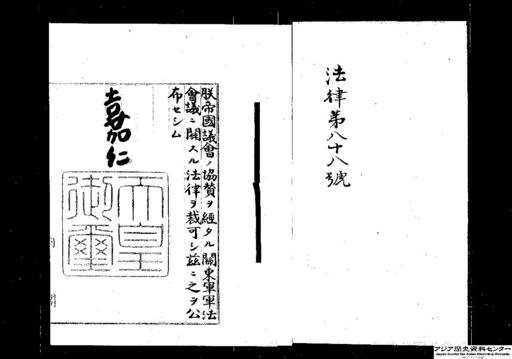 法律第八十八號
朕帝國議會ノ協贊ヲ經タル關東軍軍法
會議ニ關スル法律ヲ裁可シ茲ニ之ヲ公
布セシム
嘉仁
天皇
御璽
アジア歴史資料センター
Japan Center for Asian Historical Records